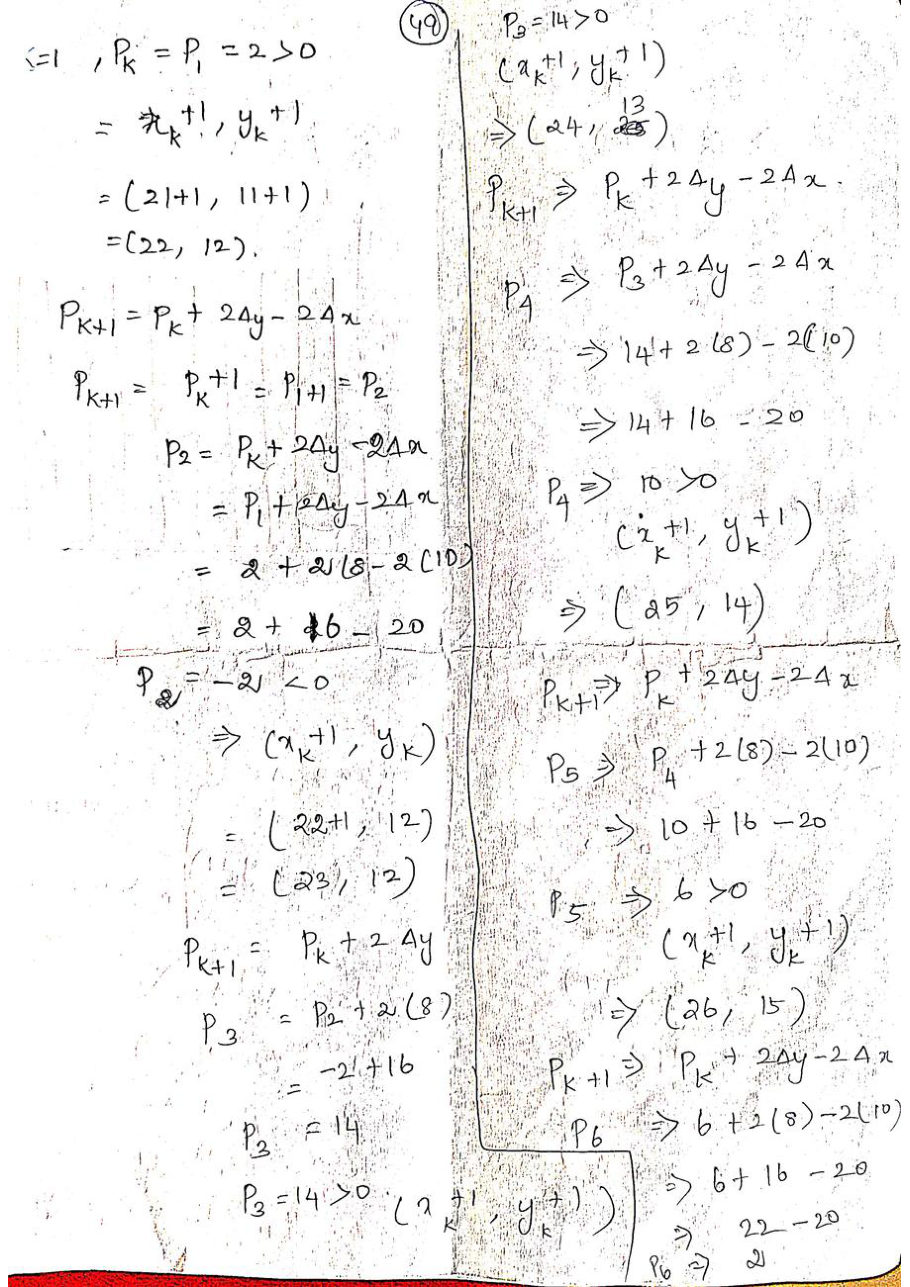 49
k=1, Pk = P1 = 2 > 0
= xk+1, yk+1
= (21+1, 11+1)
= (22, 12).
Pk+1 = Pk + 2Δy - 2Δx
Pk+1 = Pk+1 = P1+1 = P2
P2 = Pk + 2Δy - 2Δx
= P1 + 2Δy - 2Δx
= 2 + 2(8 - 2(10)
= 2 + 16 - 20
P2 = -2 < 0
⇒ (xk+1, yk)
= (22+1, 12)
= (23, 12)
Pk+1 = Pk + 2Δy
P3 = P2 + 2(8)
= -2 + 16
P3 = 14
P3 = 14 > 0 (xk+1, yk+1)
P3 = 14 > 0
(xk+1, yk+1)
⇒ (24, 13)
Pk+1 ⇒ Pk + 2Δy - 2Δx.
P4 ⇒ P3 + 2Δy - 2Δx
⇒ 14 + 2(8) - 2(10)
⇒ 14 + 16 - 20
P4 ⇒ 10 > 0
(xk+1, yk+1)
⇒ (25, 14)
Pk+1 ⇒ Pk + 2Δy - 2Δx
P5 ⇒ P4 + 2(8) - 2(10)
⇒ 10 + 16 - 20
P5 ⇒ 6 > 0
(xk+1, yk+1)
⇒ (26, 15)
Pk+1 ⇒ Pk + 2Δy - 2Δx
P6 ⇒ 6 + 2(8) - 2(10)
⇒ 6 + 16 - 20
⇒ 22 - 20
P6 ⇒ 2